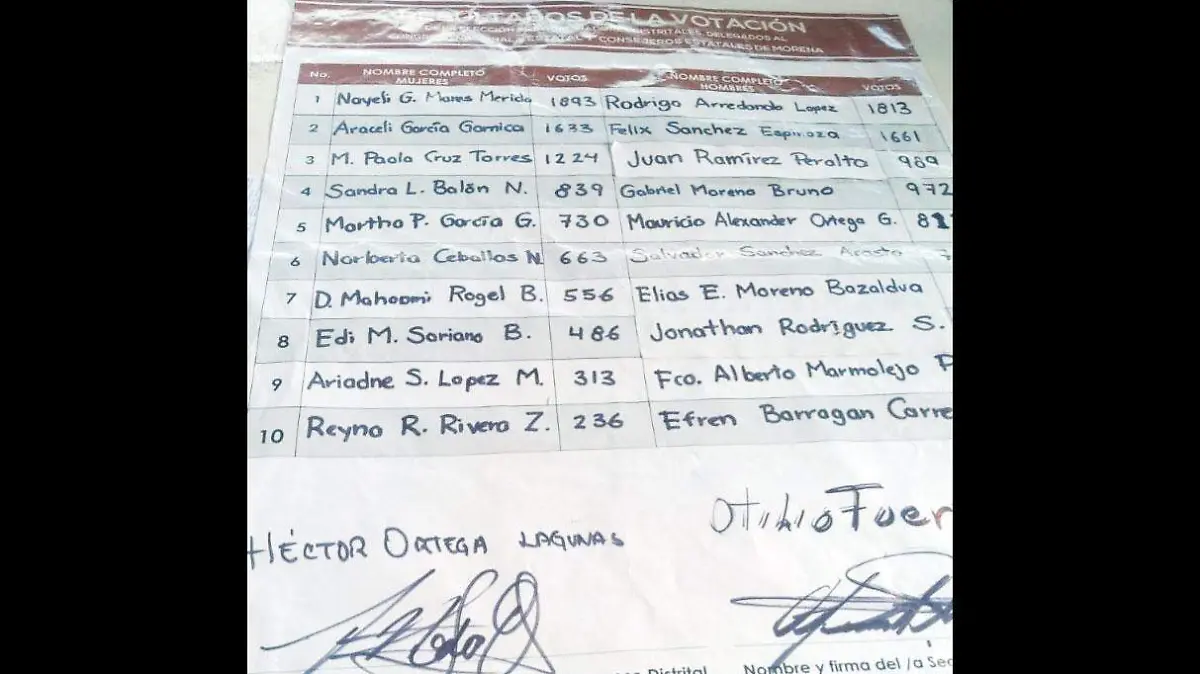 RESULTADOS DE LA VOTACIÓN
DISTRITALES, DELEGADOS AL
ESTATAL Y CONSEJEROS ESTATALES DE MORENA
No. NOMBRE COMPLETO MUJERES VOTOS NOMBRE COMPLETO HOMBRES VOTOS
1 Nayeli G. Mares Merida 1893 Rodrigo Arredondo Lopez 1813
2 Araceli García Garnica 1633 Felix Sanchez Espinoza 1661
3 M. Paola Cruz Torres 1224 Juan Ramírez Peralta 989
4 Sandra L. Balón N. 839 Gabriel Moreno Bruno 972
5 Martha P. García G. 730 Mauricio Alexander Ortega G. 81
6 Norberta Ceballos N. 663 Salvador Sanchez Acosta 7
7 D. Mahoomi Rogel B. 556 Elias E. Moreno Bazaldua
8 Edi M. Soriano B. 486 Jonathan Rodriguez S.
9 Ariadne S. Lopez M. 313 Fco. Alberto Marmolejo P
10 Reyna R. Rivera Z. 236 Efren Barragan Carre
Otilio Fuer
HÉCTOR ORTEGA LAGUNAS
Distrital
Nombre y firma del /a Sec